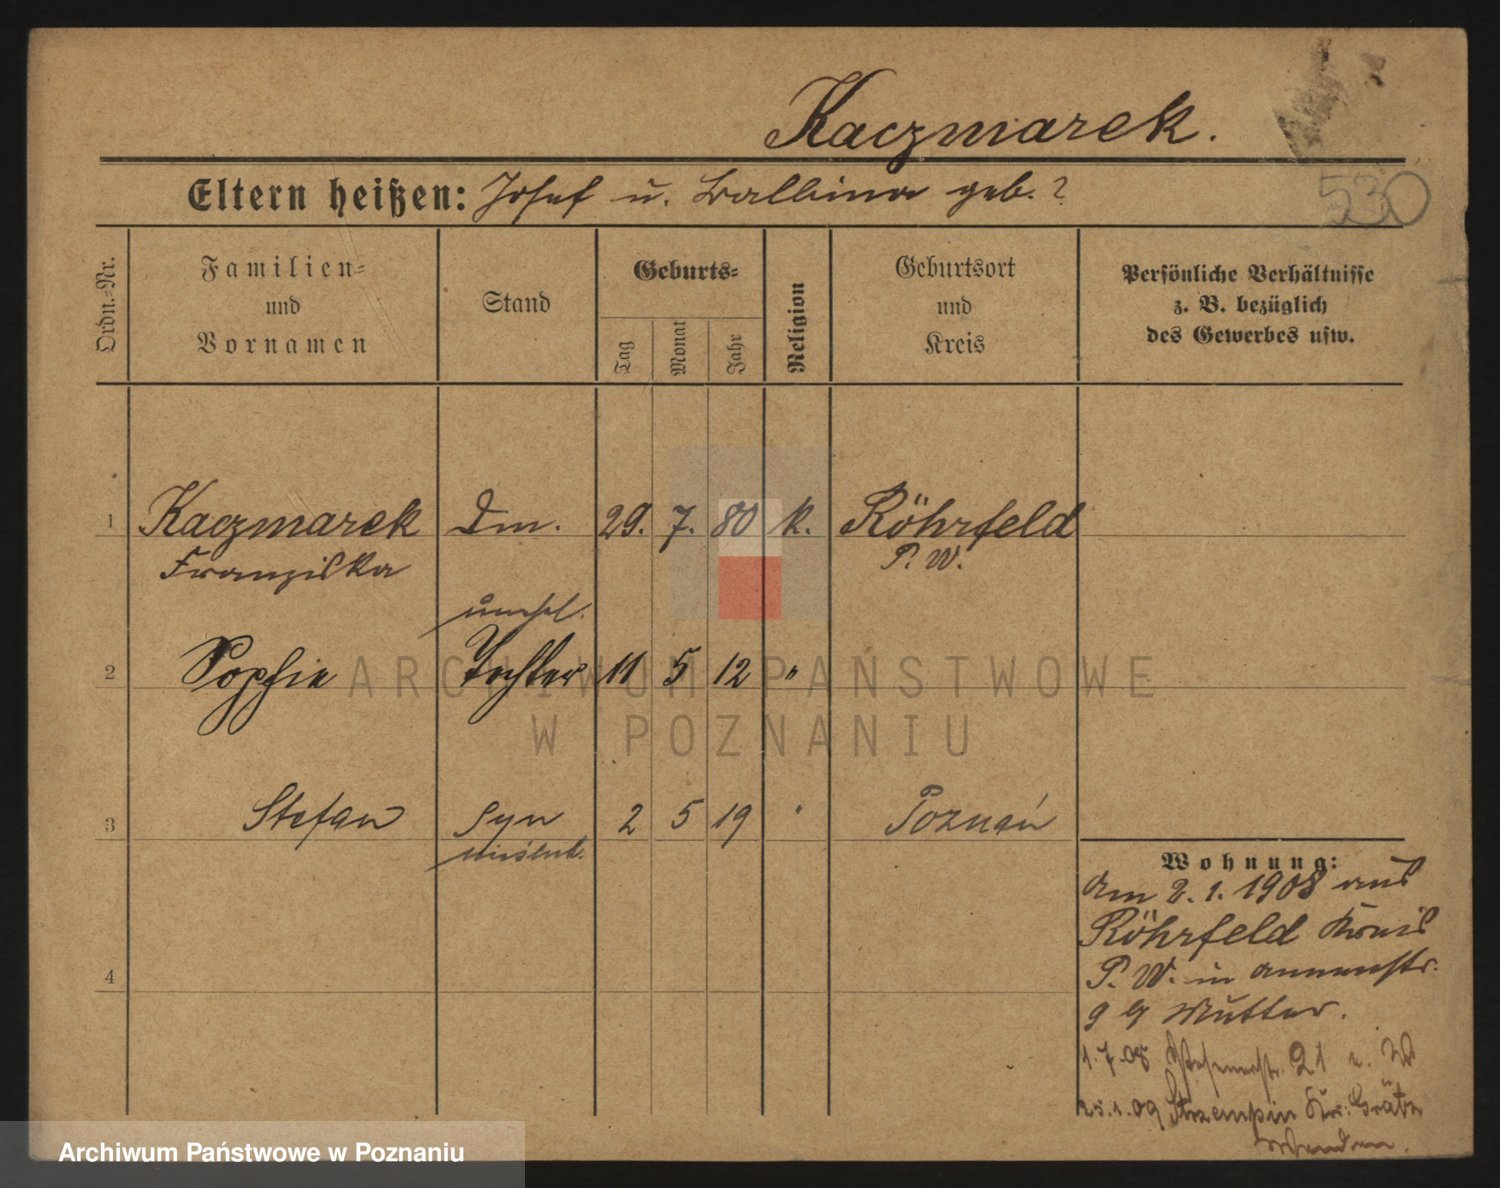 Kaczmarek.
530
Eltern heißen: Josef u. Ballbina geb. ?
Ordn.=Nr.
Familien=
und
Vornamen
Stand
Geburts=
Tag
Monat
Jahr
Religion
Geburtsort
und
Kreis
Persönliche Verhältnisse
z. B. bezüglich
des Gewerbes usw.
1 Kaczmarek Dm. 29. 7. 80 k. Röhrfeld
Franziska P. W.
unehel.
2 Sophie Tochter 11 5 12 "
3 Stefan syn 2 5 19 " Poznań
nieślub.
Wohnung:
Am 2. 1. 1908 aus
Röhrfeld Kreis
P. W. in Annenstr.
9 Mutter.
1.7.08 21
1.09 Strzempin Kr. Grätz
4
ARCHIWUM PAŃSTWOWE
W POZNANIU
Archiwum Państwowe w Poznaniu